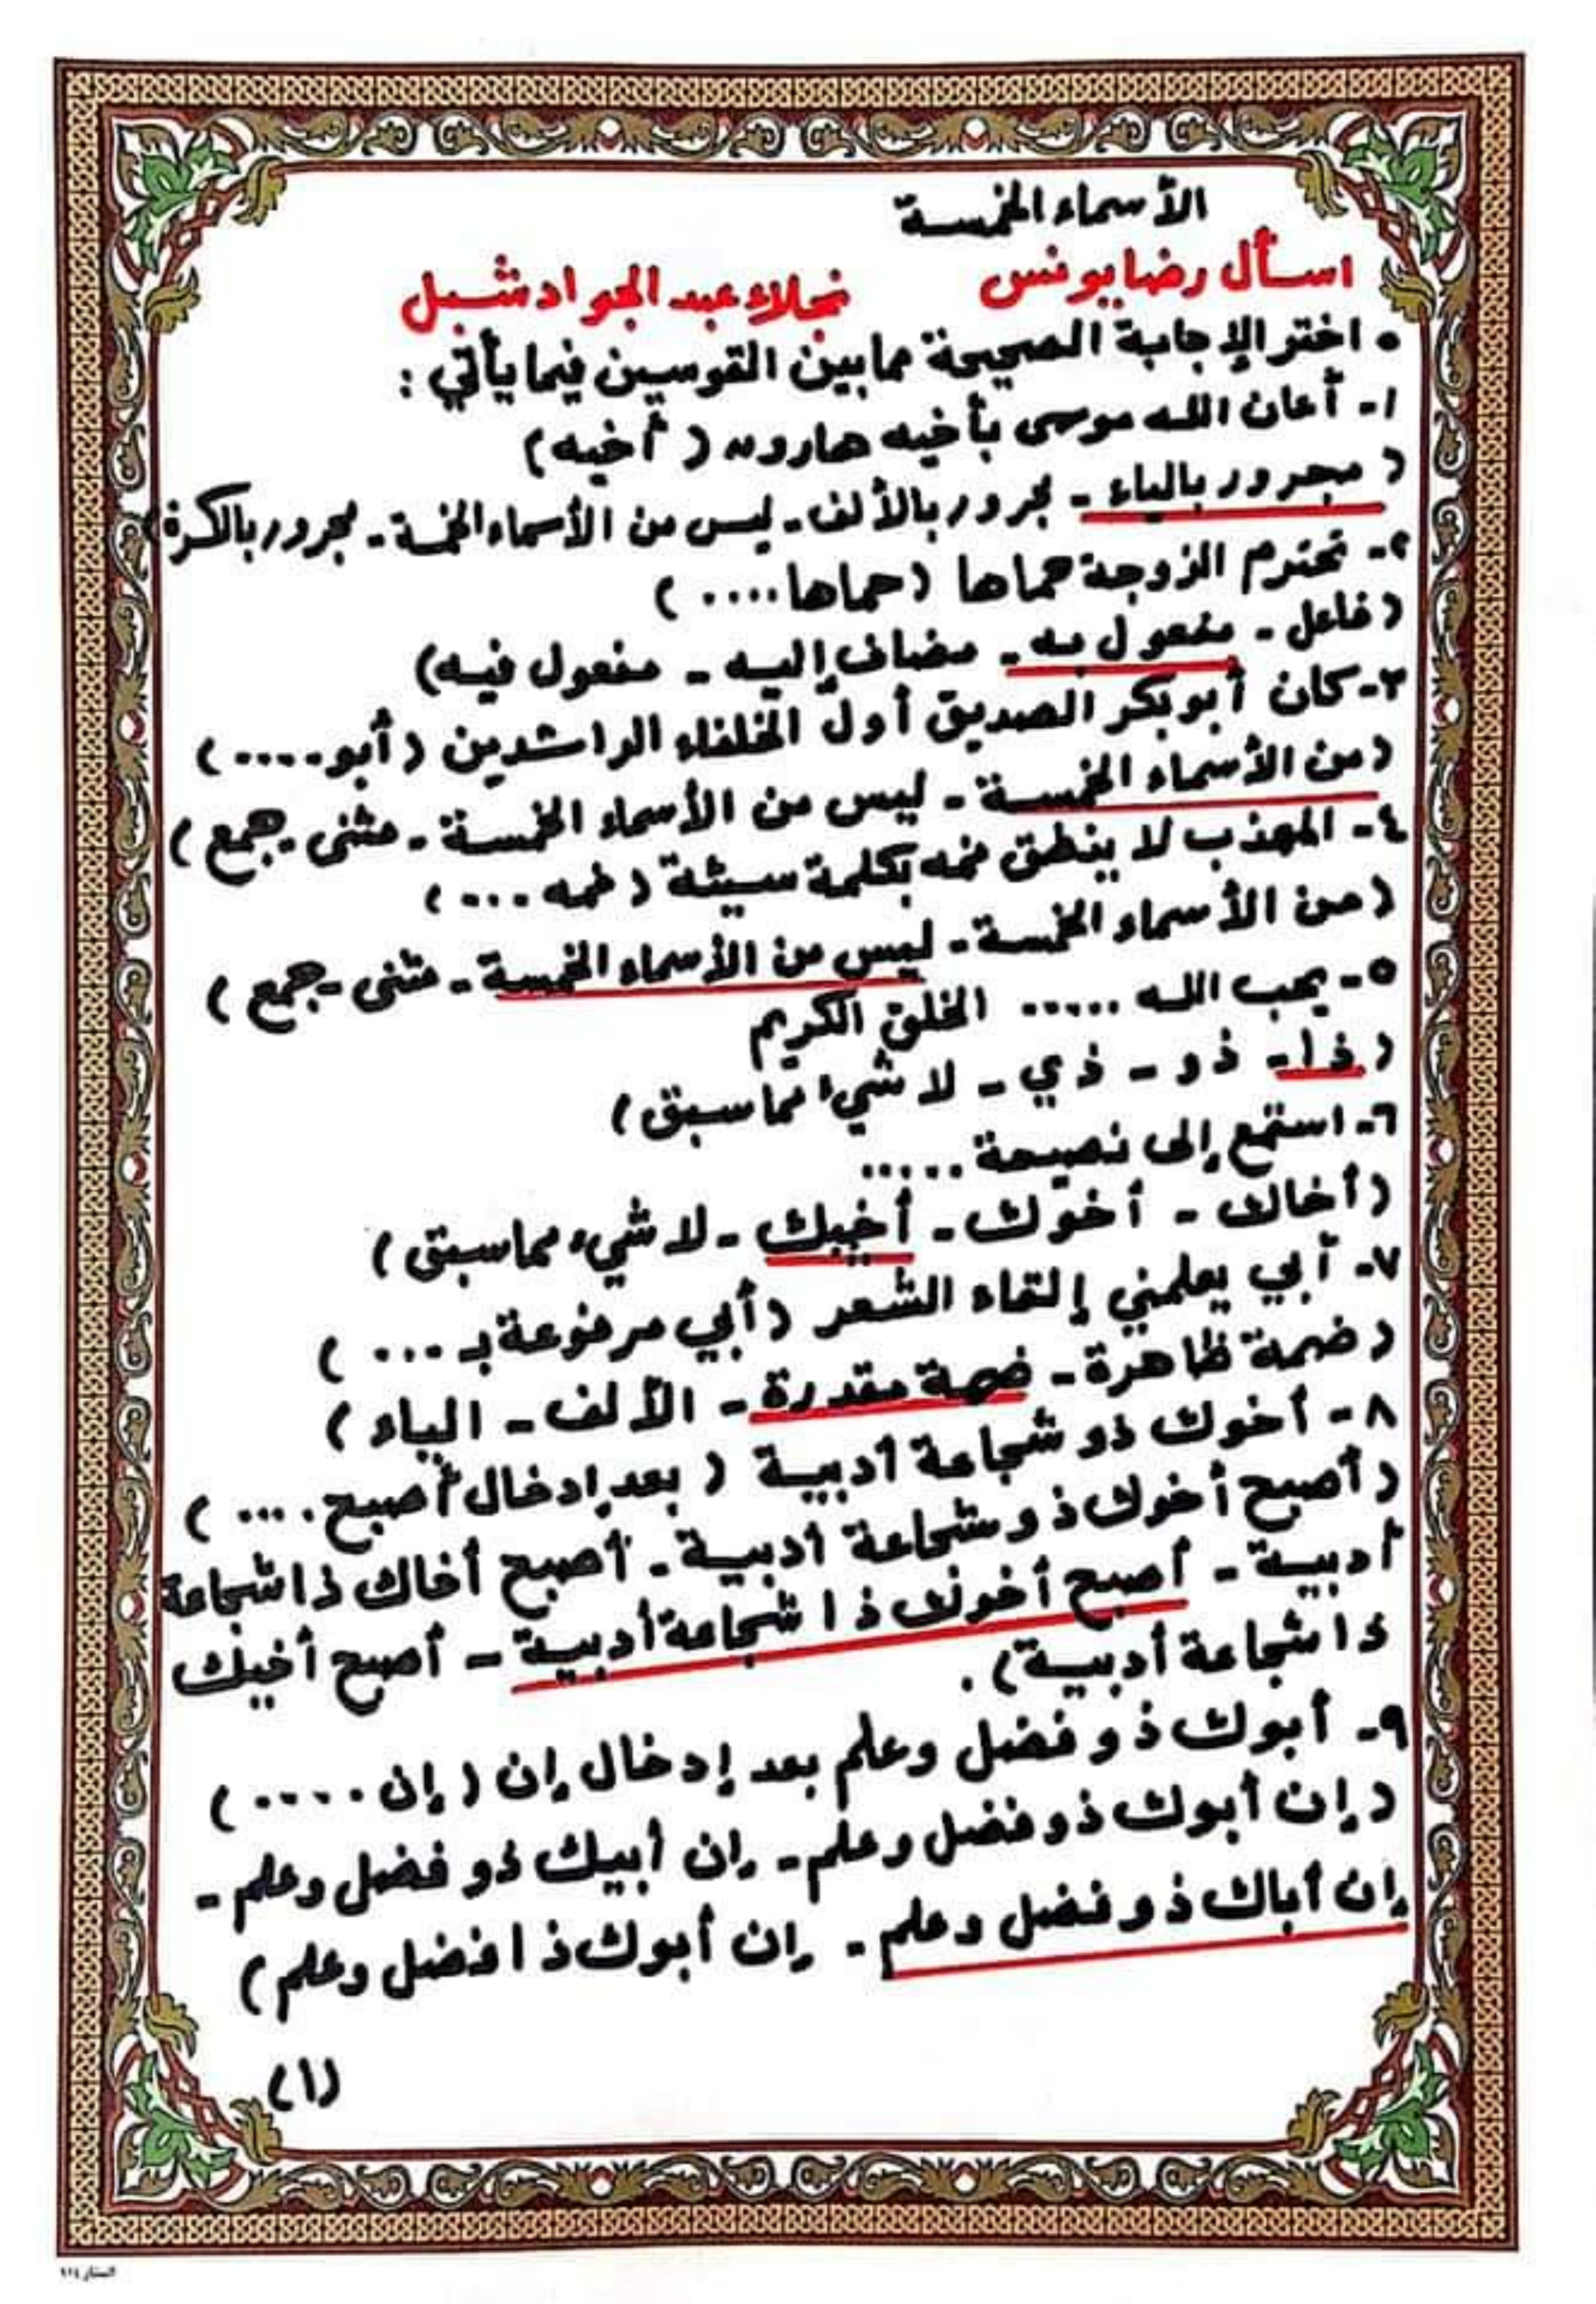 الأسماء الخمسة
اسأل رضا يونس نجلاء عبد الجواد شبل
• اختر الإجابة الصحيحة مما بين القوسين فيما يأتي :
١- أعان الله موسى بأخيه هارون ( أخيه )
( مجرور بالياء - مجرور بالألف - ليس من الأسماء الخمسة - مجرور بالكسرة )
٢- تحترم الزوجة حماها ( حماها .... )
( فاعل - مفعول به - مضاف إليه - مفعول فيه )
٣- كان أبو بكر الصديق أول الخلفاء الراشدين ( أبو .... )
( من الأسماء الخمسة - ليس من الأسماء الخمسة - مثنى - جمع )
٤- المهذب لا ينطق فمه بكلمة سيئة ( فمه ... )
( من الأسماء الخمسة - ليس من الأسماء الخمسة - مثنى - جمع )
٥- يحب الله ..... الخلق الكريم
( ذا - ذو - ذي - لا شيء مما سبق )
٦- استمع إلى نصيحة .....
( أخاك - أخوك - أخيك - لا شيء مما سبق )
٧- أبي يعلمني إلقاء الشعر ( أبي مرفوعة بـ ... )
( ضمة ظاهرة - ضمة مقدرة - الألف - الياء )
٨- أخوك ذو شجاعة أدبية ( بعد إدخال أصبح .... )
( أصبح أخوك ذو شجاعة أدبية - أصبح أخاك ذا شجاعة
أدبية - أصبح أخوك ذا شجاعة أدبية - أصبح أخيك
ذا شجاعة أدبية ) .
٩- أبوك ذو فضل وعلم بعد إدخال إن ( إن .... )
( إن أبوك ذو فضل وعلم - إن أبيك ذو فضل وعلم -
إن أباك ذو فضل وعلم - إن أبوك ذا فضل وعلم )
(١)
الستار ٩١٤